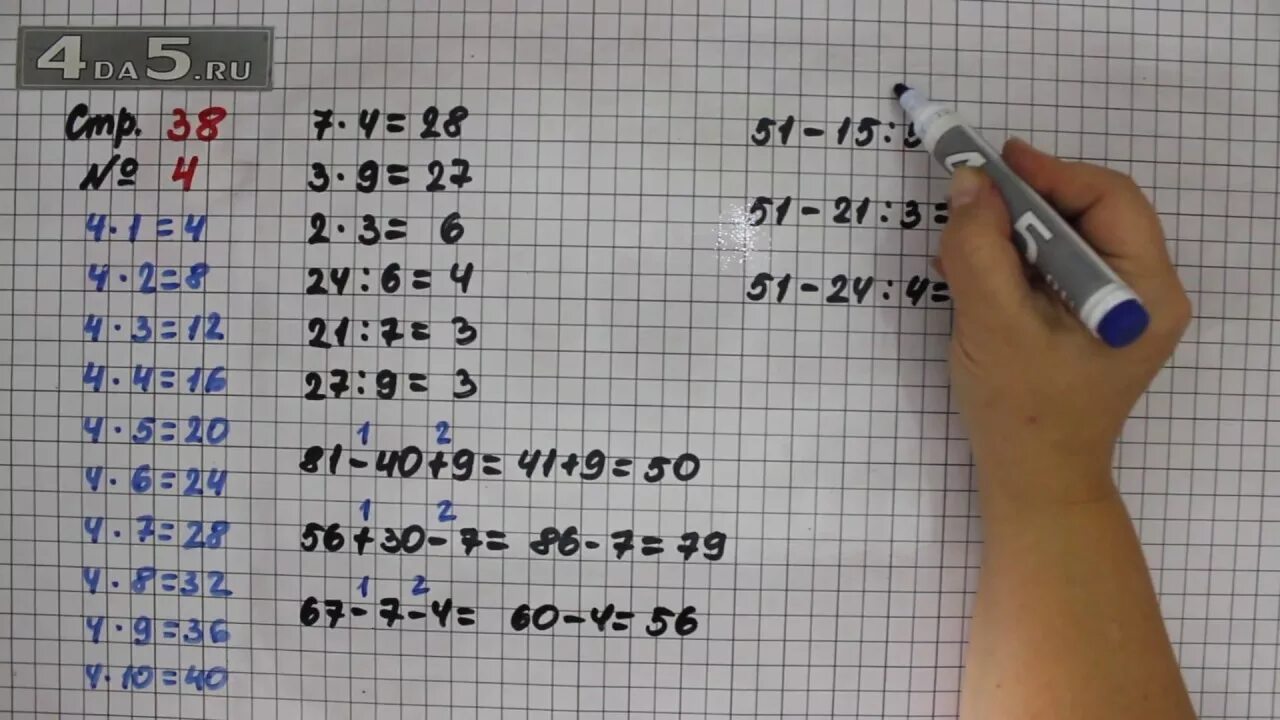 4DA5.RU
Стр. 38
№ 4
4·1=4
4·2=8
4·3=12
4·4=16
4·5=20
4·6=24
4·7=28
4·8=32
4·9=36
4·10=40
7·4=28
3·9=27
2·3= 6
24:6=4
21:7= 3
27:9= 3
1 2
81-40+9=41+9=50
1 2
56+30-7= 86-7=79
1 2
67-7-4= 60-4=56
51-15:
51-21:3=
51-24:4=
5